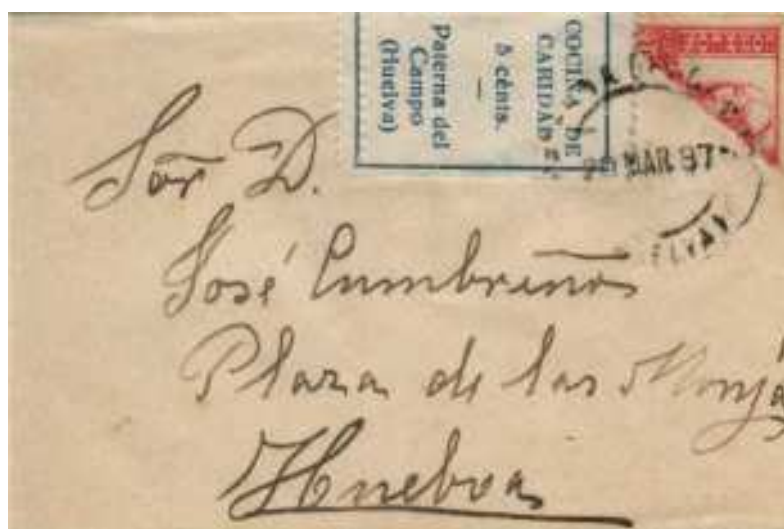 COCINA DE
CARIDAD
5 cénts.
Paterna del
Campo
(Huelva)
MAR 37
Sor D.
José Cumbreños
Plaza de las Monja
Huelva